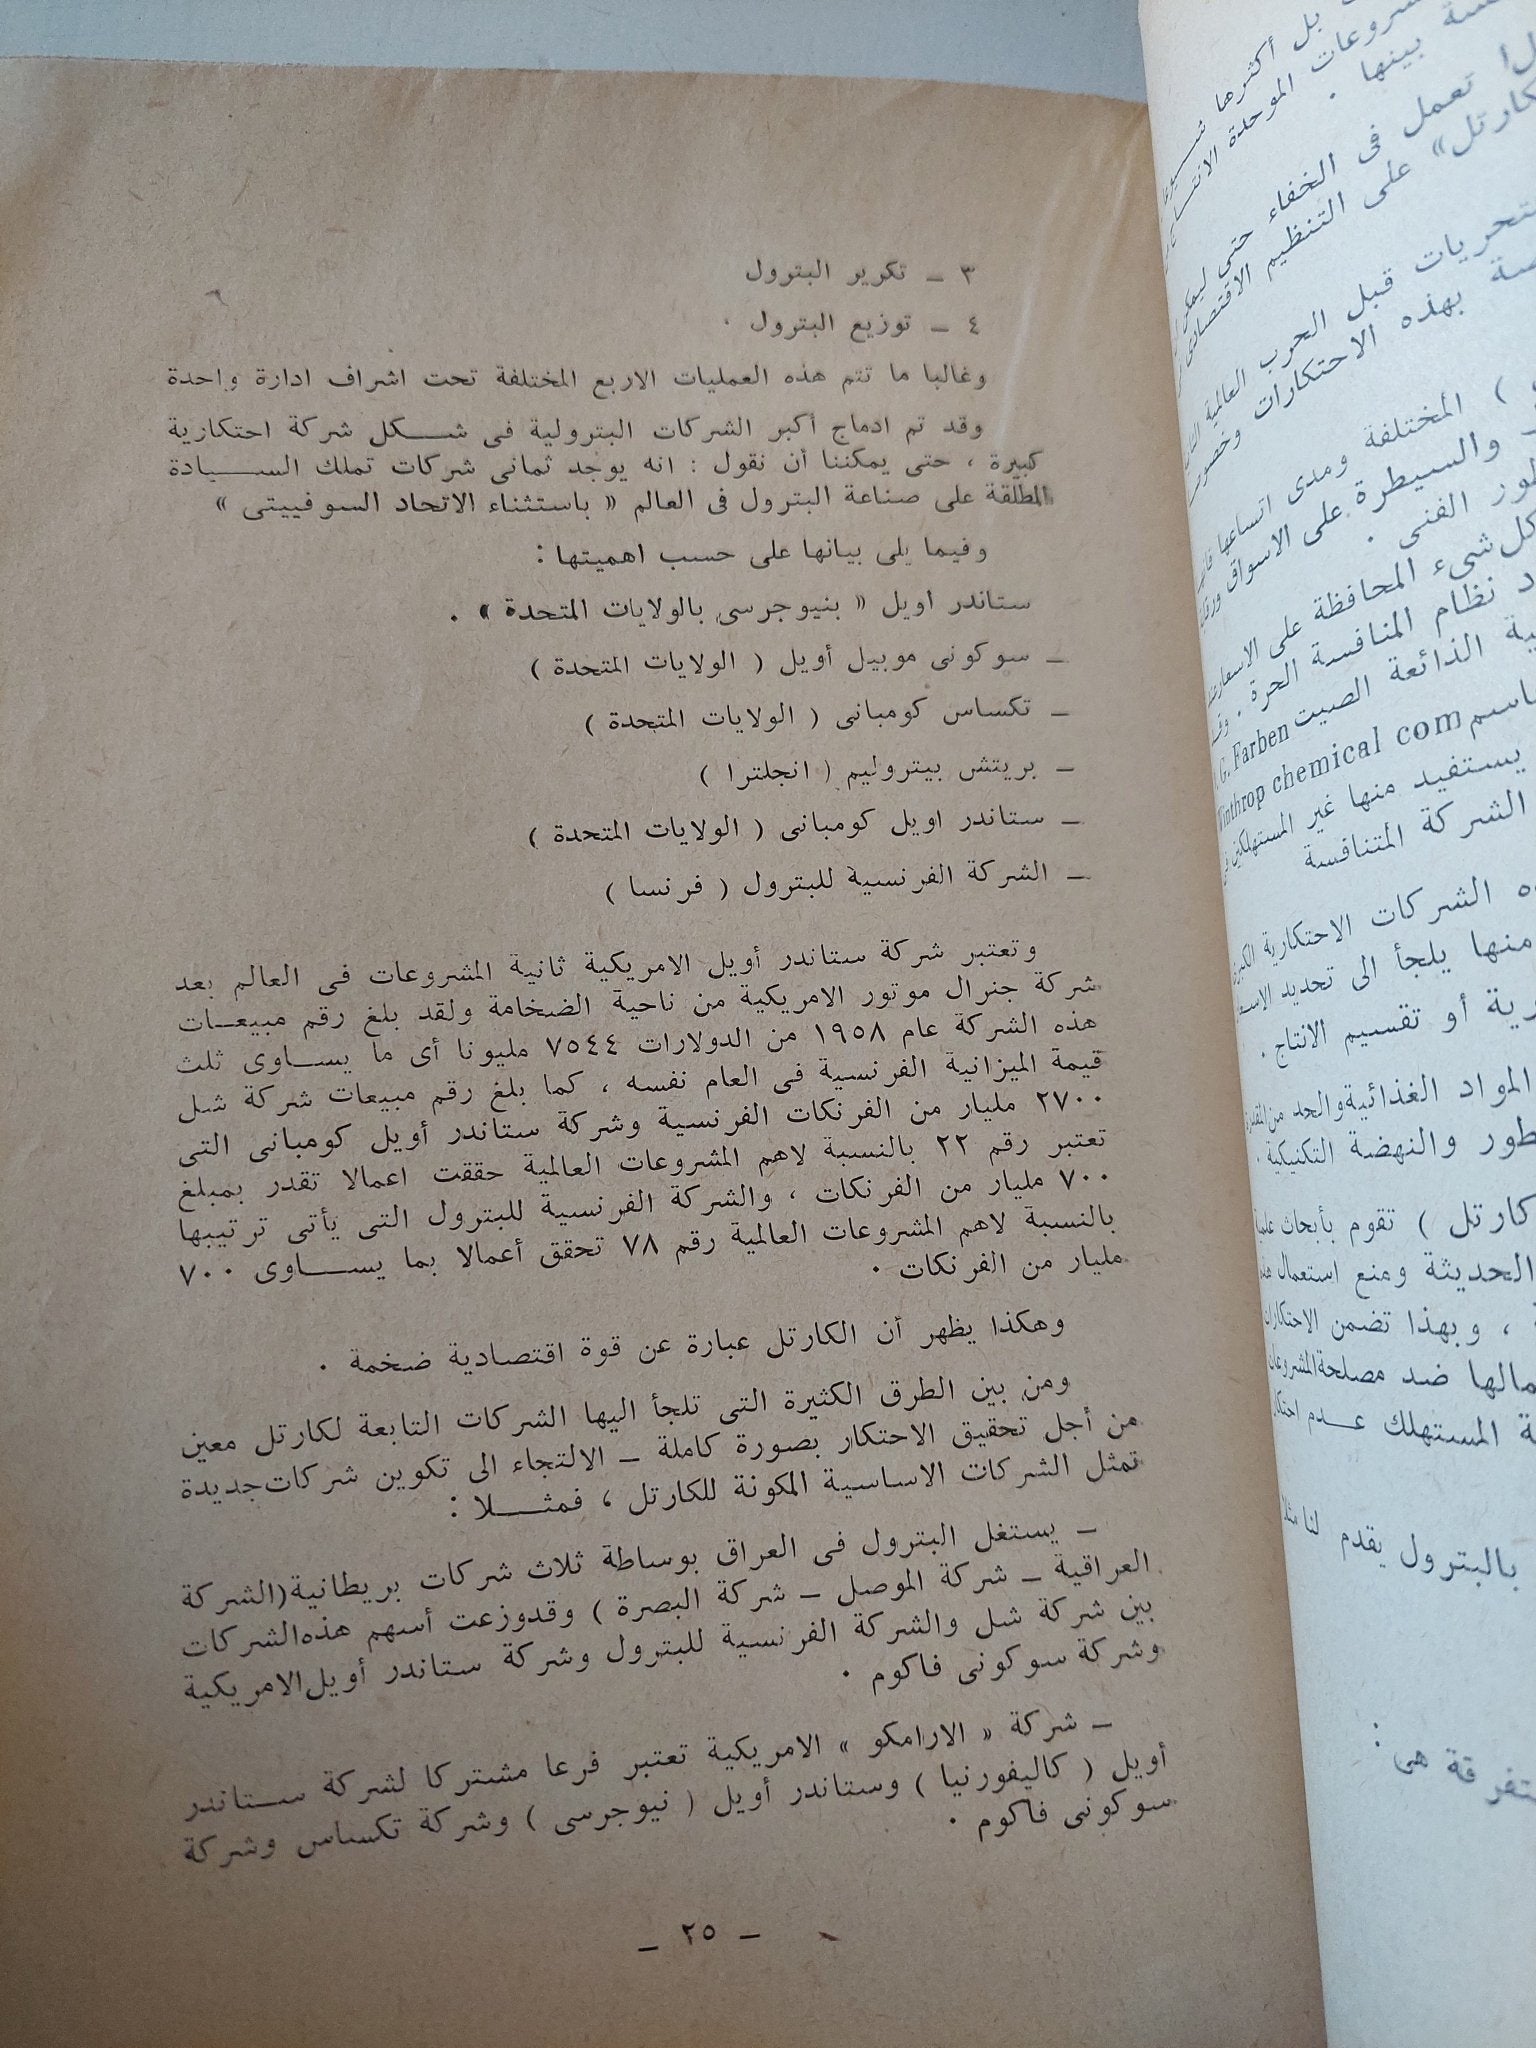 بل أكثرها
المشروعات الموحدة
بينها .
تعمل فى الخفاء حتى
كارتل» على التنظيم الاقتصادى
قبل الحرب العالمية
بهذه الاحتكارات
) المختلفة ومدى اتساعها
والسيطرة على الاسواق
الفنى .
كل شىء المحافظة على الاسعار
نظام المنافسة الحرة .
الذائعة الصيت G. Farben
chemical com
يستفيد منها غير المستهلكين
الشركة المتنافسة
الشركات الاحتكارية
منها يلجأ الى تحديد
أو تقسيم الانتاج .
المواد الغذائية والحد
والنهضة التكنيكية .
كارتل ) تقوم بأبحاث
الحديثة ومنع استعمال
، وبهذا تضمن الاحتكارات
ضد مصلحة المشروعات
المستهلك عـــدم
بالبترول يقدم لنا
هى :
٣ ــ تكرير البترول
٤ ــ توزيع البترول ·
وغالبا ما تتم هذه العمليات الاربع المختلفة تحت اشراف ادارة واحدة
وقد تم ادماج أكبر الشركات البترولية فى شـــكل شركة احتكارية
كبيرة ، حتى يمكننا أن نقول : انه يوجد ثمانى شركات تملك الســـيادة
المطلقة على صناعة البترول فى العالم « باستثناء الاتحاد السوفييتى »
وفيما يلى بيانها على حسب اهميتها :
ستاندر اويل « بنيوجرسى بالولايات المتحدة » .
ــ سوكونى موبيل أويل ( الولايات المتحدة )
ــ تكساس كومبانى ( الولايات المتحدة )
ــ بريتش بيتروليم ( انجلترا )
ــ ستاندر اويل كومبانى ( الولايات المتحدة )
ــ الشركة الفرنسية للبترول ( فرنسا )
وتعتبر شركة ستاندر أويل الامريكية ثانية المشروعات فى العالم بعد
شركة جنرال موتور الامريكية من ناحية الضخامة ولقد بلغ رقم مبيعــات
هذه الشركة عام ١٩٥٨ من الدولارات ٧٥٤٤ مليونا أى ما يســاوى ثلث
قيمة الميزانية الفرنسية فى العام نفسه ، كما بلغ رقم مبيعات شركة شل
٢٧٠٠ مليار من الفرنكات الفرنسية وشركة ستاندر أويل كومبانى التى
تعتبر رقم ٢٢ بالنسبة لاهم المشروعات العالمية حققت اعمالا تقدر بمبلغ
٧٠٠ مليار من الفرنكات ، والشركة الفرنسية للبترول التى يأتى ترتيبها
بالنسبة لاهم المشروعات العالمية رقم ٧٨ تحقق أعمالا بما يســـاوى ٧٠٠
مليار من الفرنكات ·
وهكذا يظهر أن الكارتل عبارة عن قوة اقتصادية ضخمة ·
ومن بين الطرق الكثيرة التى تلجأ اليها الشركات التابعة لكارتل معين
من أجل تحقيق الاحتكار بصورة كاملة ــ الالتجاء الى تكوين شركات جديدة
تمثل الشركات الاساسية المكونة للكارتل ، فمثـــلا :
ــ يستغل البترول فى العراق بوساطة ثلاث شركات بريطانية (الشركة
العراقية ــ شركة الموصل ــ شركة البصرة ) وقدوزعت أسهم هذه الشركات
بين شركة شل والشركة الفرنسية للبترول وشركة ستاندر أويل الامريكية
وشركة سوكونى فاكوم ·
ــ شركة « الارامكو » الامريكية تعتبر فرعا مشتركا لشركة ســتاندر
أويل ( كاليفورنيا ) وستاندر أويل ( نيوجرسى ) وشركة تكساس وشركة
سوكونى فاكوم ·
ــ ٢٥ ــ